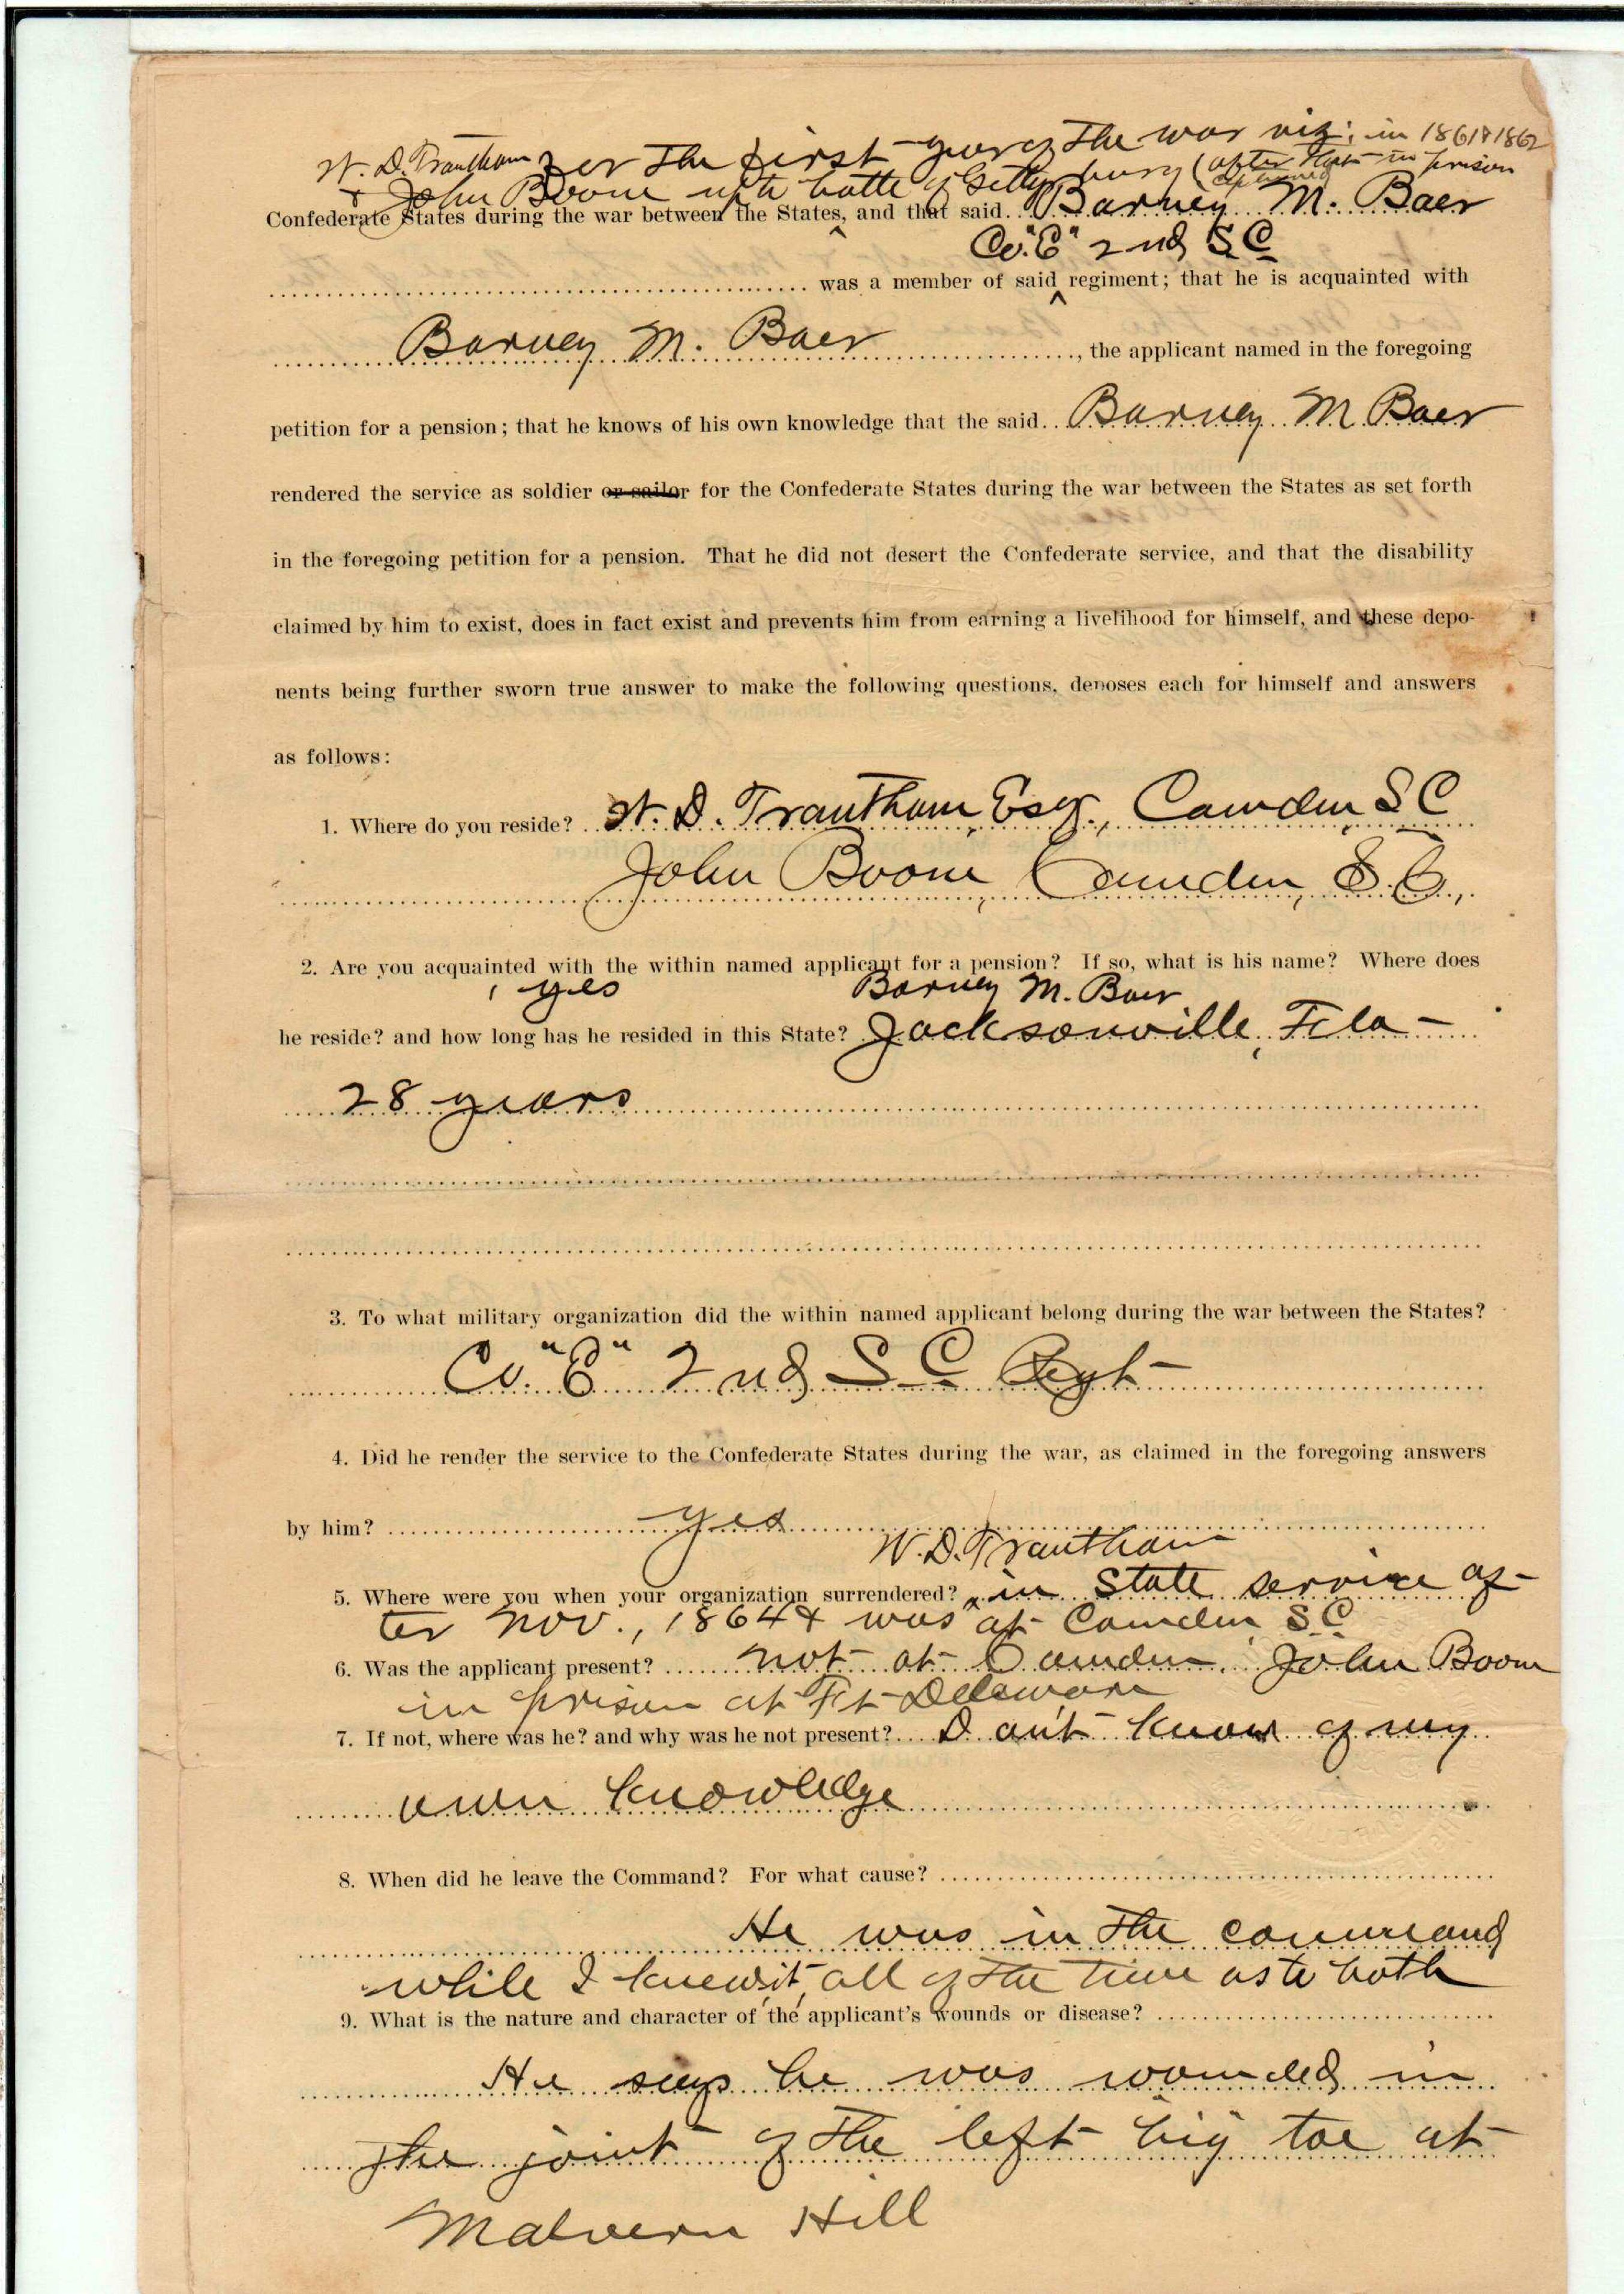 W. D. Trantham for the first year of the war viz: in 1861 & 1862
& John Boone up to battle of Gettysburg (after that in prison
captured
Confederate States during the war between the States, and that said Barney M. Baer
Co. "E" 2nd S C
was a member of said regiment; that he is acquainted with
Barney M. Baer, the applicant named in the foregoing
petition for a pension; that he knows of his own knowledge that the said Barney M Baer
rendered the service as soldier or sailor for the Confederate States during the war between the States as set forth
in the foregoing petition for a pension. That he did not desert the Confederate service, and that the disability
claimed by him to exist, does in fact exist and prevents him from earning a livelihood for himself, and these depo-
nents being further sworn true answer to make the following questions, deposes each for himself and answers
as follows:
1. Where do you reside? W. D. Trantham, Esqr., Camden, S C
John Boone, Camden, S. C.,
2. Are you acquainted with the within named applicant for a pension? If so, what is his name? Where does
yes Barney M. Baer
he reside? and how long has he resided in this State? Jacksonville, Fla –
28 years
3. To what military organization did the within named applicant belong during the war between the States?
Co. "E" 2nd S C Regt
4. Did he render the service to the Confederate States during the war, as claimed in the foregoing answers
by him? yes
W. D. Trantham
5. Where were you when your organization surrendered? in State service af-
ter Nov., 1864 & was at Camden S C
6. Was the applicant present? not at Camden. John Boone
in prison at Ft Delaware
7. If not, where was he? and why was he not present? Don't know of my
own knowledge
8. When did he leave the Command? For what cause?
He was in the command
while I knew it, all of the time as to both
9. What is the nature and character of the applicant's wounds or disease?
He says he was wounded in
the joint of the left big toe at
Malvern Hill